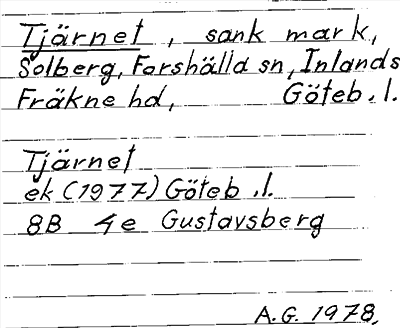 Tjärnet, sank mark,
Solberg, Forshälla sn, Inlands
Fräkne hd, Göteb. l.
Tjärnet
ek (1977) Göteb. l.
8B 4e Gustavsberg
A.G. 1978,